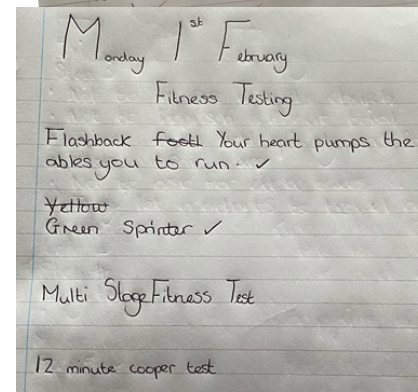 Monday 1st February
Fitness Testing
Flashback Your heart pumps the
ables you to run. ✓
Yellow
Green Sprinter ✓
Multi Stage Fitness Test
12 minute cooper test